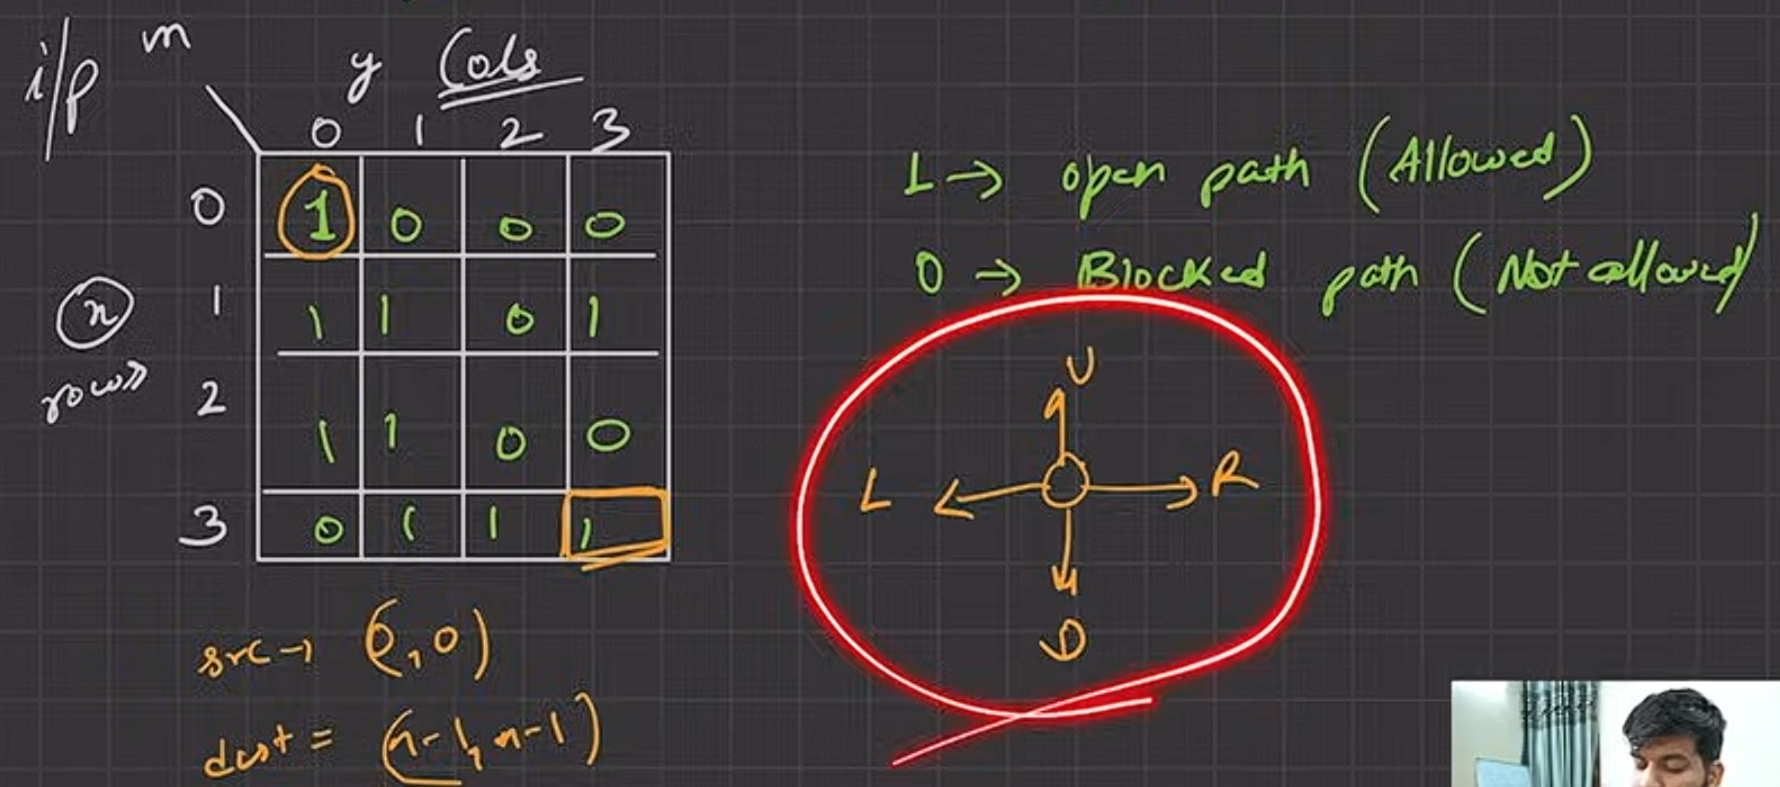 i/p m
y Cols
0 1 2 3
0 1 0 0 0
1 1 1 0 1
n
rows
2 1 1 0 0
3 0 1 1 1
src → (0,0)
dest = (n-1, n-1)
1 → open path (Allowed)
0 → Blocked path (Not allowed)
U
L R
D